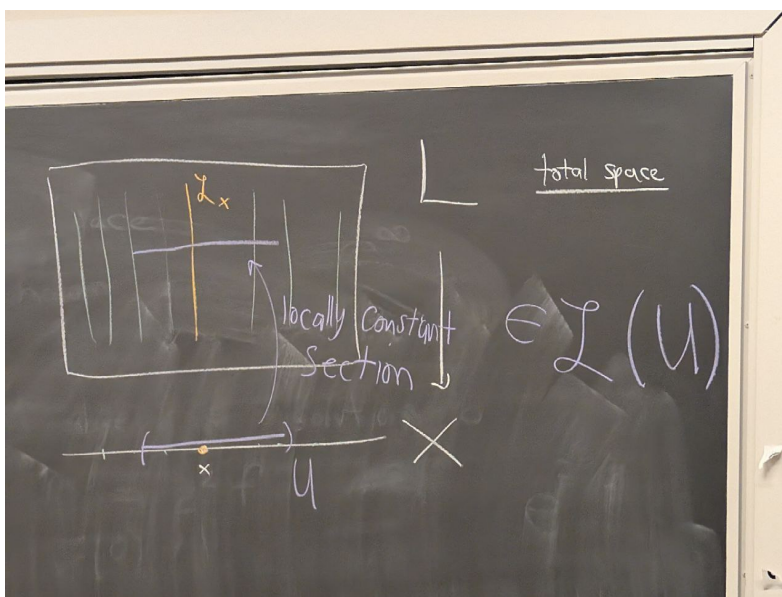 ℒₓ
L
total space
locally constant
section
∈ ℒ(U)
X
x
U